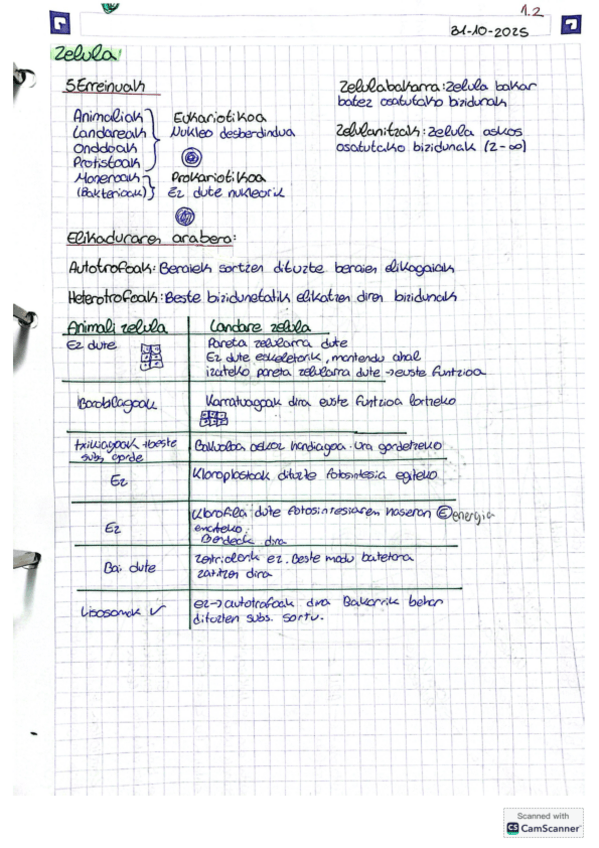 1.2
31-10-2025
Zelula:
5 Erreinuak
Zelulabakarra: Zelula bakar
batez osatutako bizidunak
Animaliak
Landareak
Onddoak
Protistoak
Eukariotikoa
Nukleo desberdindua
Zelulanitzak: Zelula askos
osatutako bizidunak (2-∞)
Moneroak
(Bakterioak)
Prokariotikoa
Ez dute nukleorik
Elikaduraren arabera:
Autotrofoak: Beraiek sortzen dituzte beraien elikagaiak
Heterotrofoak: Beste bizidunetatik elikatzen diren bizidunak
Animali zelula
Landare zelula
Ez dute
Pareta zelularra dute
Ez dute eskeletorik, mantendu ahal
izateko pareta zelularra dute → euste funtzioa
Borobilagoak
Karratuagoak dira euste funtzioa lortzeko
txikiagoak + beste
subs. gorde
Bakuoloa askoz handiagoa. Ura gordetzeko
Ez
Kloroplastoak dituzte fotosintesia egiteko
Ez
Klorofila dute fotosintesiaren hasieran E energia
emateko.
Berdeak dira
Bai dute
Zentriolorik ez. Beste modu batetora
zatitzen dira
Lisosomak ✓
ez → autotrofoak dira Bakarrik behar
dituzten subs. sortu.
Scanned with
CS CamScanner